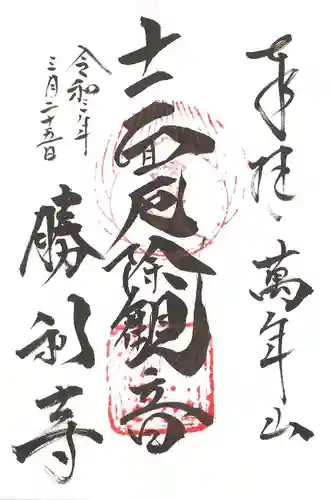 奉拝 萬年山
十一面厄除観音
勝利寺
令和三年
三月二十五日